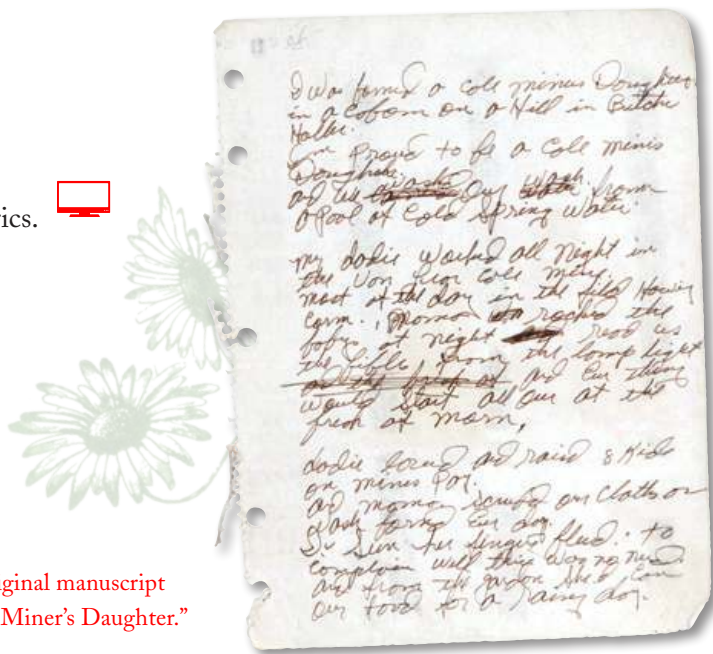 ics.
I was borned a cole mines Doughter
in a Cobom on a Hill in Butcher
Holler.
I'm Proud to be a Cole mines
Doughter.
ad we our wash from
a Pool of Cold Spring Water.
my dadie worked all Night in
the Von Lear Cole mine
most of the day in the field Howing
Corn. momma rocked the
babys at night read us
the bible from the lamp light
and ever thing
would start all over at the
fresh of morn,
dadie loved ad raised 8 Kids
on mines Pay.
ad momma our Cloths on
a wash bord Ever day.
I've Seen her fingers bleed. to
complain well this was no need
and from the garden She'd Can
our food for a rainy day.
ginal manuscript
Miner's Daughter.”